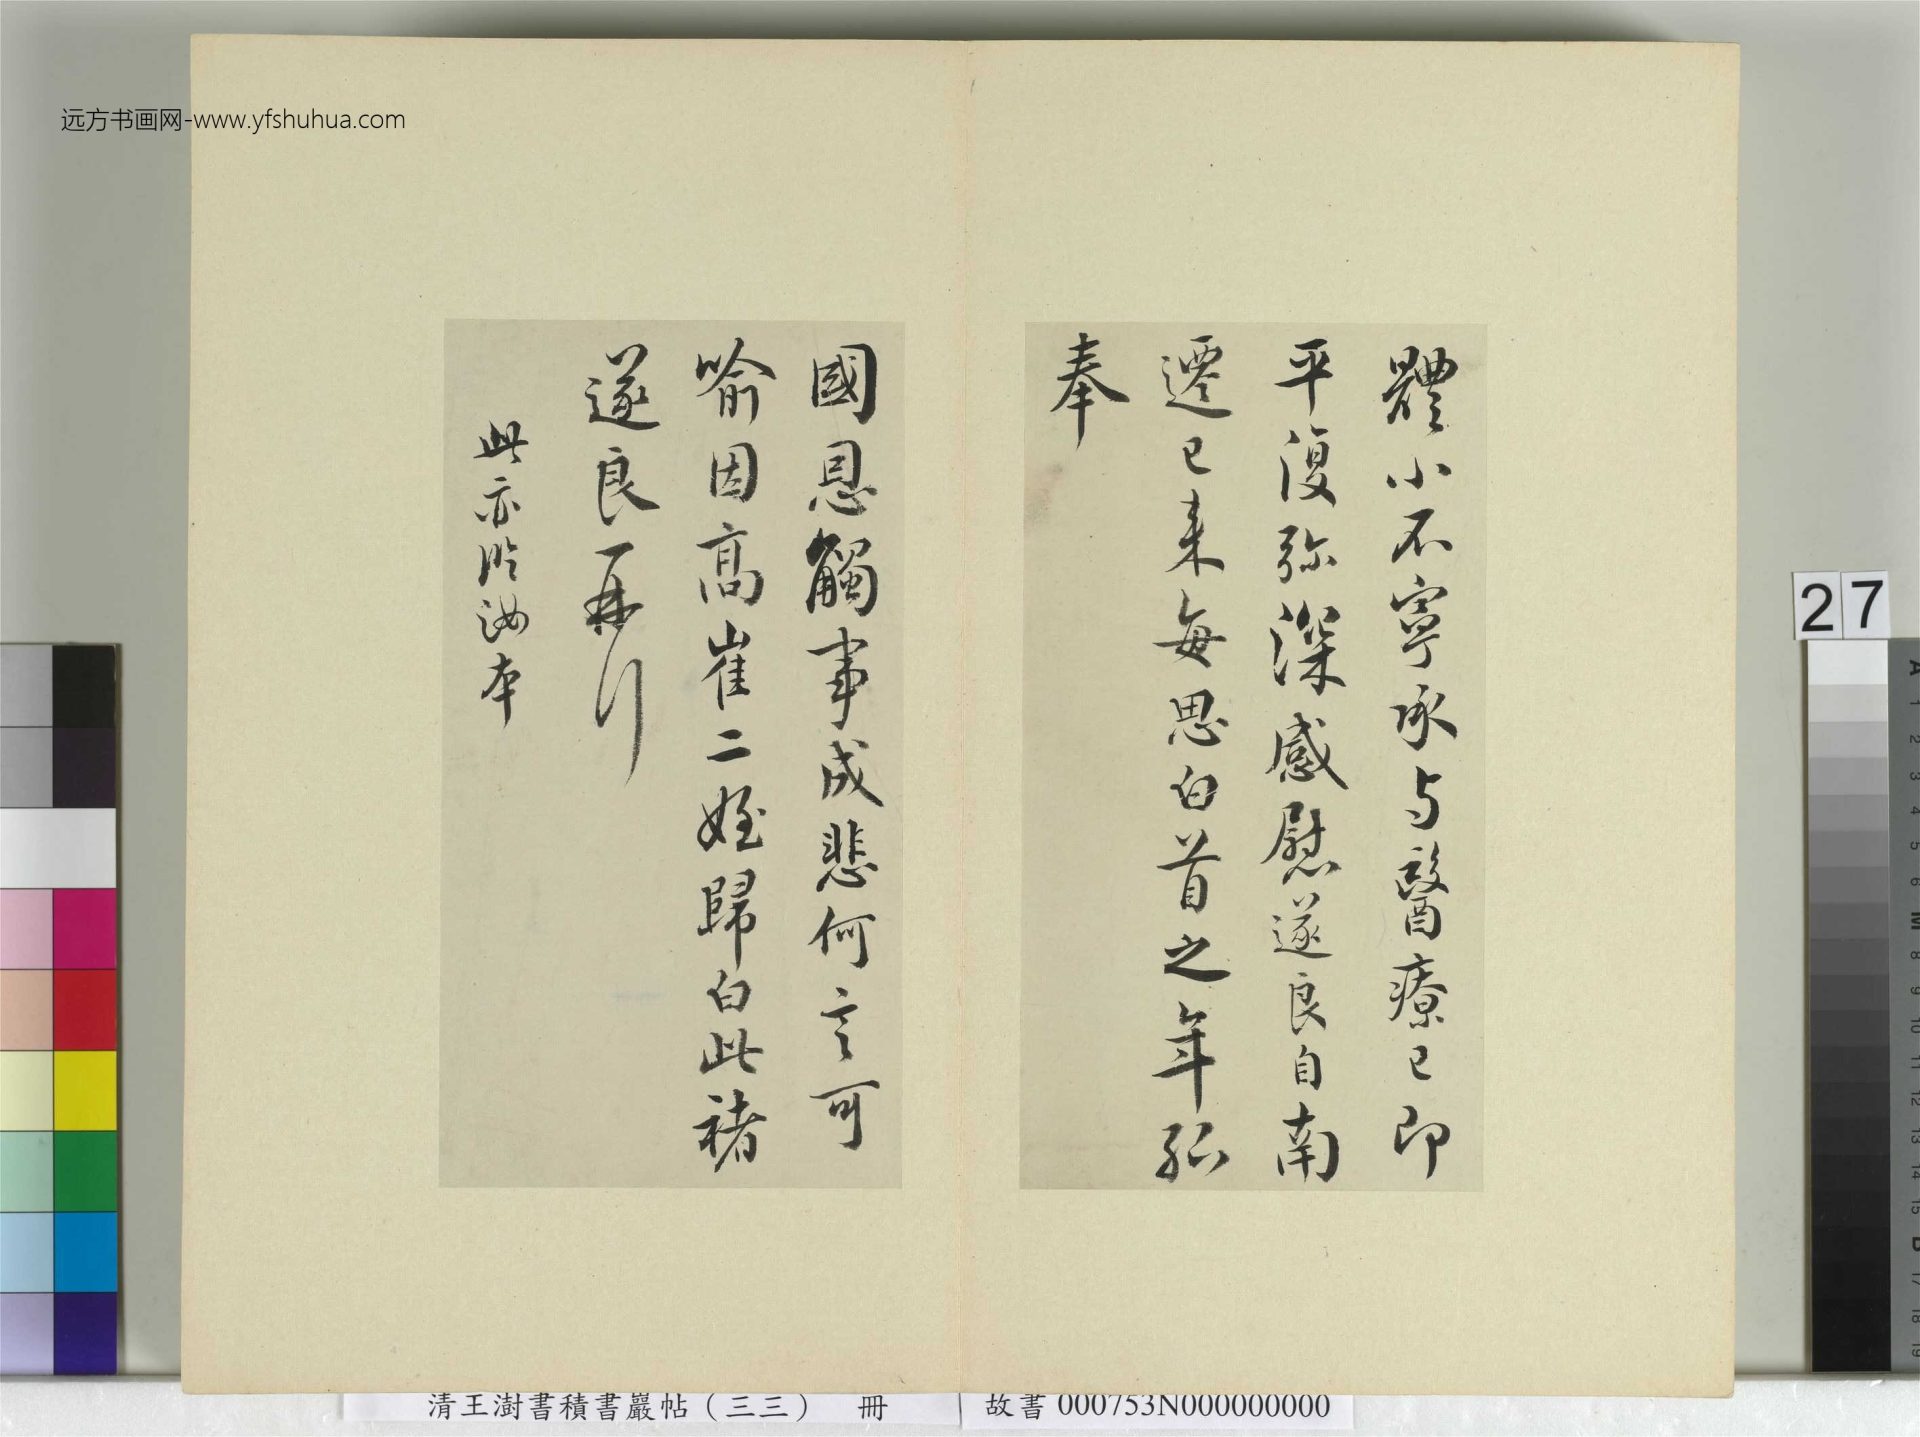 远方书画网-www.yfshuhua.com
體小不寧承与醫療已即
平復弥深感慰遂良自南
遷已来每思白首之年孤
奉
國恩觸事成悲何言可
喻因高崔二姪歸白此褚
遂良再行
此亦临汝本
27
清王澍書積書巖帖（三三） 冊 故書 000753N000000000